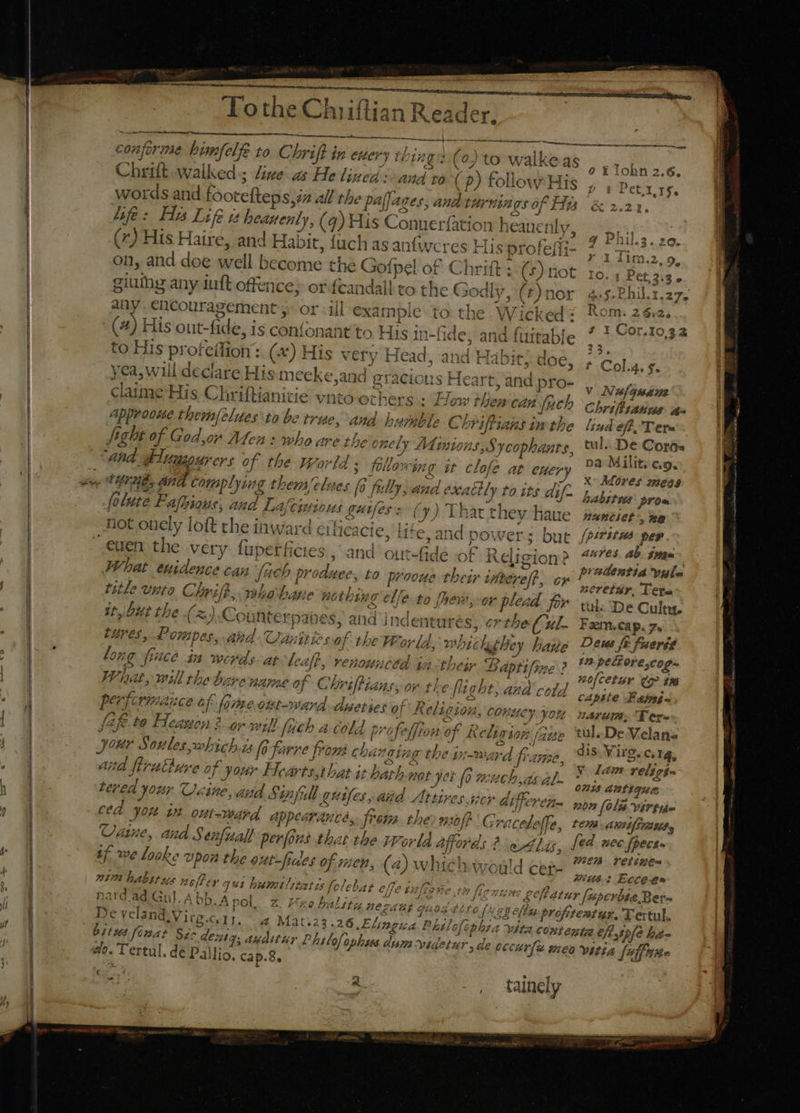 To the Christian Reader.
conforme himselfe to Christ in euery thing: (o) to walke as
Christ walked; liue as He liued: and to (p) follow His
words and footesteps, in all the passages, and turnings of His
life: His Life is heauenly, (q) His Conuersation heauenly,
(r) His Haire, and Habit, such as answeres His professi-
on, and doe well become the Gospel of Christ: (s) not
giuing any iust offence, or scandall to the Godly, (t) nor
any encouragement, or ill example to the Wicked:
(u) His out-side, is consonant to His in-side, and suitable
to His profession: (x) His very Head, and Habit, doe,
yea, will declare His meeke, and gracious Heart, and pro-
claime His Christianitie vnto others: How then can such
approoue themselues to be true, and humble Christians in the
sight of God, or Men: who are the onely Minions, Sycophants,
and Humourers of the World; following it close at euery
turne, and complying themselues so fully, and exactly to its dis-
solute Fashions, and Lasciuious guises: (y) That they haue
not onely lost the inward efficacie, life, and power; but
euen the very superficies, and out-side of Religion?
What euidence can such produce, to prooue their interest, or
title vnto Christ, who haue nothing else to shew, or plead for
it, but the (z) Counterpanes, and indentures, or the Cul-
tures, Pompes, and Vanities of the World, which they haue
long since in words at least, renounced in their Baptisme?
What, will the bare name of Christians, or the slight, and cold
performance of some out-ward dueties of Religion, conuey you
safe to Heauen? or will such a cold profession of Religion saue
your Soules, which is so farre from changing the in-ward frame,
and structure of your Hearts, that it hath not yet so much, as al-
tered your Vaine, and Sinfull guises, and Attires, nor differen-
ced you in out-ward appearance, from the most Gracelesse,
Vaine, and Sensuall persons that the World affords? Alas,
if we looke vpon the out-sides of men, (a) which would cer-
o 1 Iohn 2.6.
p 1 Pet.1,15.
& 2.21.
q Phil.3.20.
r 1 Tim.2,9,
10. 1 Pet,3:3.
4.5. Phil.1.27.
Rom: 2 6.2.
t 1 Cor.10,32
33.
t Col.4.5.
v Nusquam
Christianus a-
liud est, Ter-
tul. De Coro-
na Milit. c.9.
x Mores meos
habitus pro-
nunciet, ne
spiritus per
aures ab im-
prudentia vul-
neretur, Ter-
tul. De Cultu.
Fœm.cap.7.
y Deus si fuerit
in pectore, cog-
noscetur & in
capite Fami-
narum, Ter-
tul. De Velan-
dis Virg. c.14.
y Iam religi-
onis antiqua
non solũ virtu-
tem amisimus,
sed nec speci-
men retine-
mus: Ecce e-
nim habitus noster qui humilitatis solebat esse insigne, in signum gestatur superbiæ, Ber-
nard. ad Gul. Abb. Apol. z Vno habitu negant quod suo profitentur. Tertul.
De veland, Virg. c.11. a Mat.23.26. Elingua Philosophia vita contenta est, ipse ha-
bitus sonat Sic deniq; auditur Philosophus dum videtur, de occursu meo vitia suffun-
do. Tertul. de Pallio. cap.8.
a
tainely